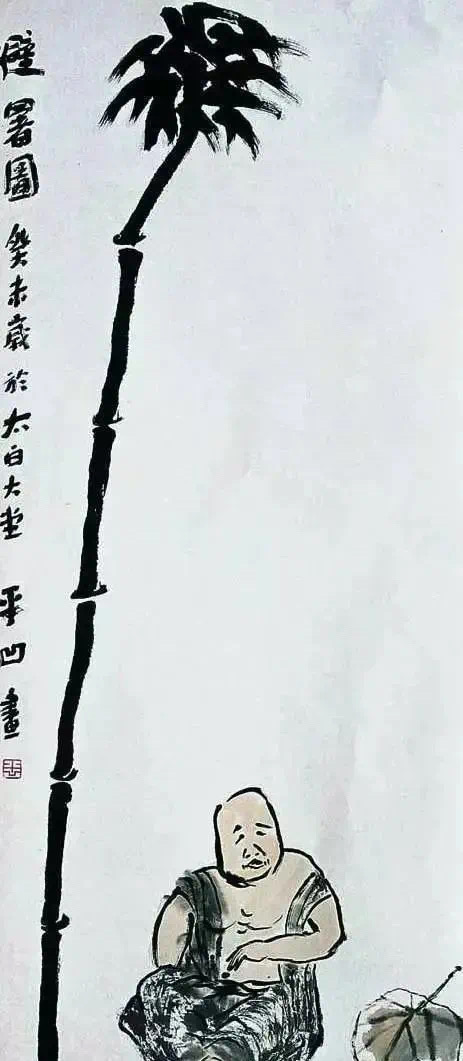 避暑圖 癸未歲於太白大堂 平凹畫